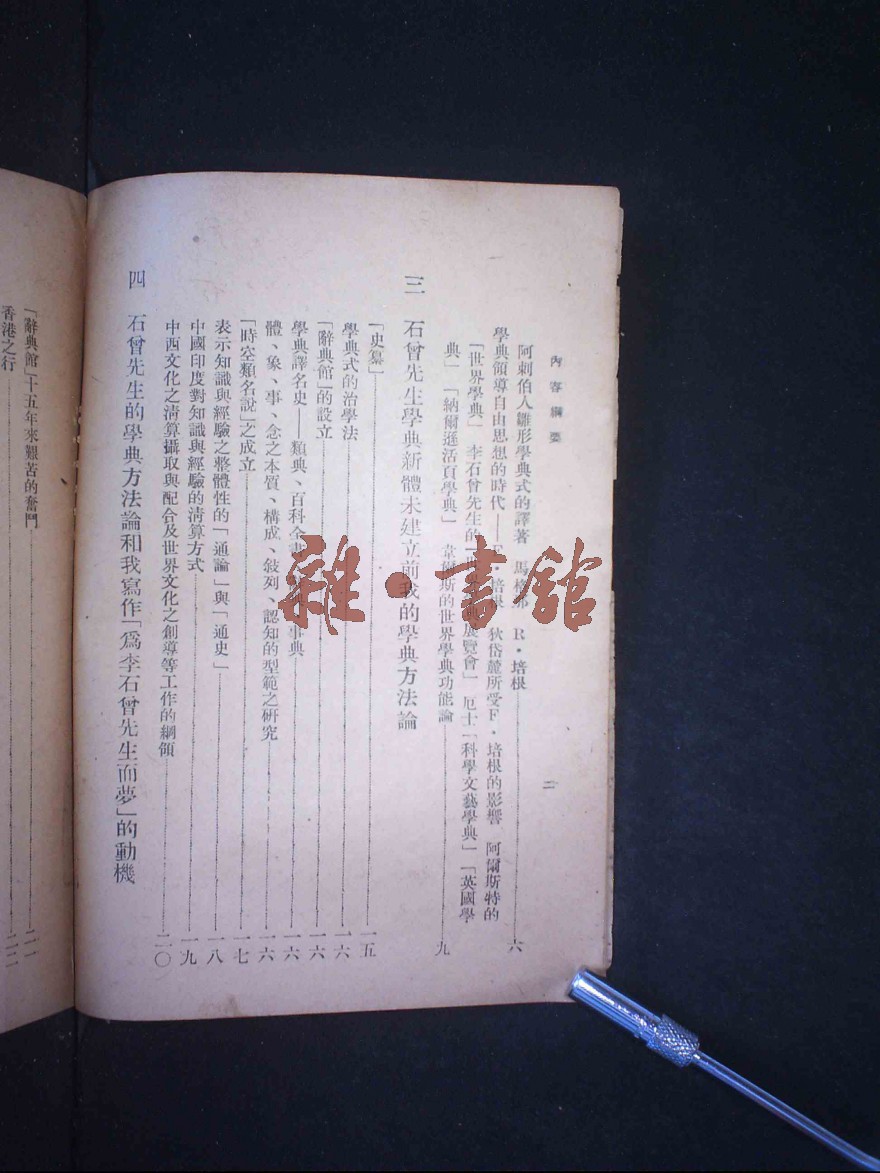 內容綱要
二
阿剌伯人雛形學典式的譯著　馬格那　R・培根……六
學典領導自由思想的時代——F・培根　狄岱麓所受F・培根的影響　阿爾斯特的
「世界學典」　李石曾先生的「世　展覽會」　厄士「科學文藝學典」　「英國學
典」　「納爾遜活頁學典」　韋爾斯的世界學典功能論……九
三　石曾先生學典新體未建立前我的學典方法論
「史纂」……一五
學典式的治學法……一六
「辭典館」的設立……一六
學典譯名史——類典、百科全書　事典……一六
體、象、事、念之本質、構成、敍列、認知的型範之研究……一六
「時空類名說」之成立……一七
表示知識與經驗之整體性的「通論」與「通史」……一八
中國印度對知識與經驗的清算方式……一九
中西文化之清算攝取與配合及世界文化之創導等工作的綱領……二〇
四　石曾先生的學典方法論和我寫作「爲李石曾先生而夢」的動機
「辭典館」十五年來艱苦的奮鬥……二一
香港之行……二二
雜・書館